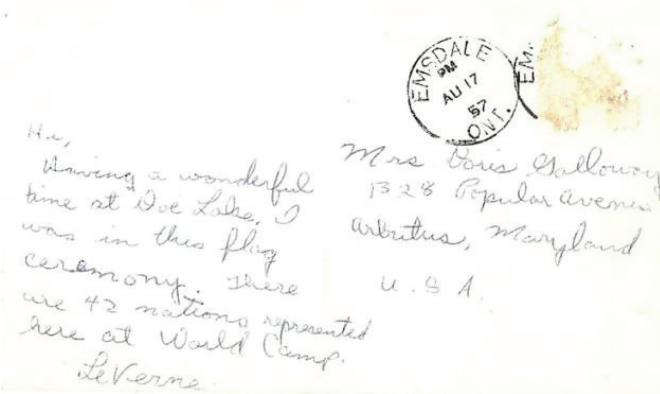 EMSDALE
PM
AU 17
57
ONT.
EM
Hi,
Having a wonderful
time at Doe Lake. I
was in this flag
ceremony. There
are 42 nations represented
here at World Camp.
LeVerne
Mrs Doris Galloway
1328 Popular Avenue
Arbutus, Maryland
U.S.A.